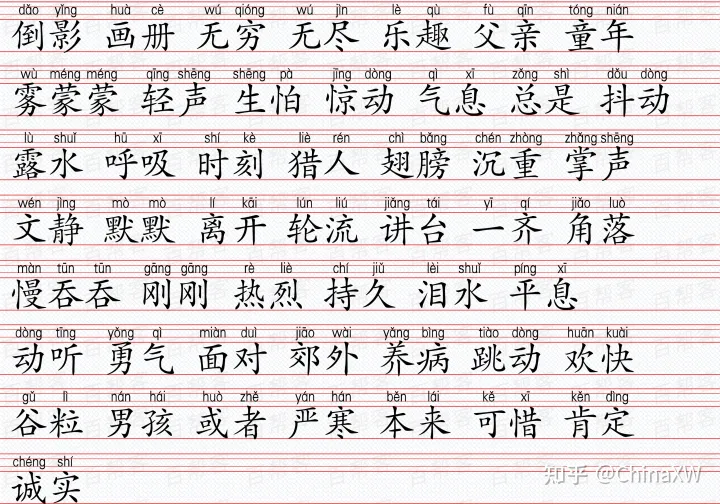 dǎo yǐng huà cè wú qióng wú jìn lè qù fù qīn tóng nián
倒影 画册 无穷 无尽 乐趣 父亲 童年
wù méng méng qīng shēng shēng pà jīng dòng qì xī zǒng shì dǒu dòng
雾蒙蒙 轻声 生怕 惊动 气息 总是 抖动
lù shuǐ hū xī shí kè liè rén chì bǎng chén zhòng zhǎng shēng
露水 呼吸 时刻 猎人 翅膀 沉重 掌声
wén jìng mò mò lí kāi lún liú jiǎng tái yī qí jiǎo luò
文静 默默 离开 轮流 讲台 一齐 角落
màn tūn tūn gāng gāng rè liè chí jiǔ lèi shuǐ píng xī
慢吞吞 刚刚 热烈 持久 泪水 平息
dòng tīng yǒng qì miàn duì jiāo wài yǎng bìng tiào dòng huān kuài
动听 勇气 面对 郊外 养病 跳动 欢快
gǔ lì nán hái huò zhě yán hán běn lái kě xī kěn dìng
谷粒 男孩 或者 严寒 本来 可惜 肯定
chéng shí
诚实
知乎 @ChinaXW